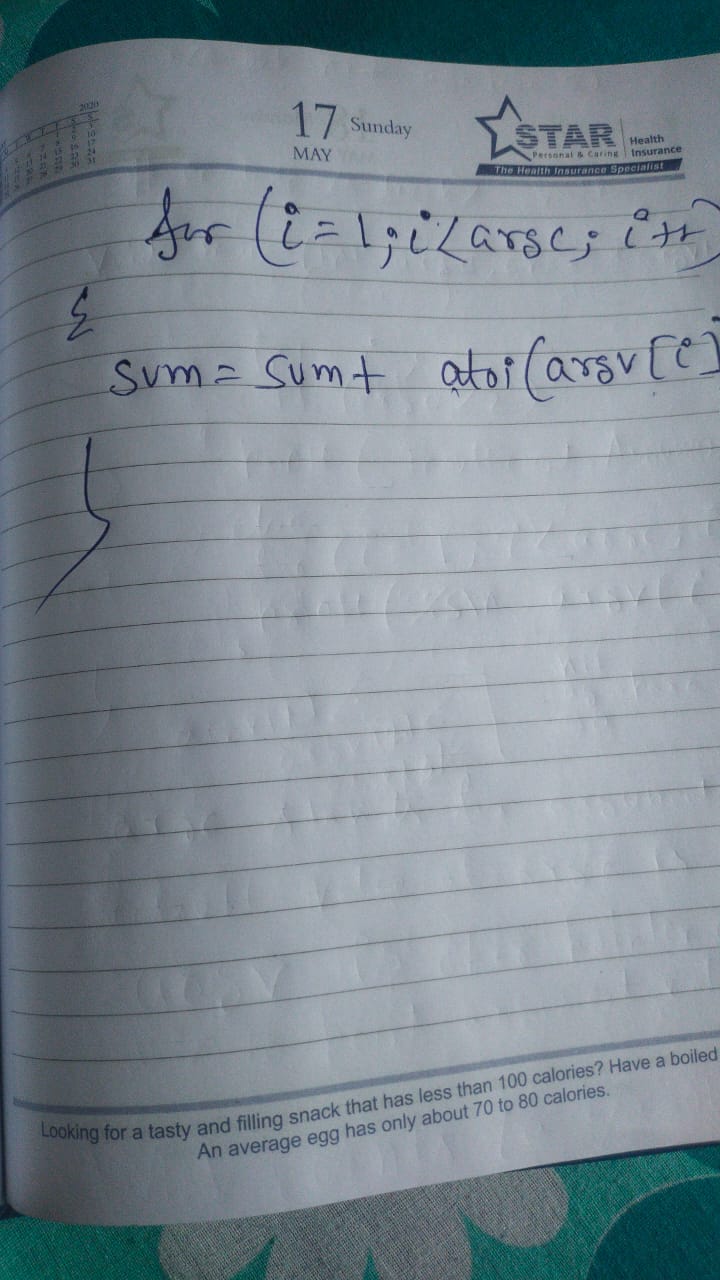 2020
17 Sunday
MAY
STAR Health Insurance
Personal & Caring
The Health Insurance Specialist
for (i=1;i<argc; i++)
{
sum = sum + atoi(argv[i]
}
Looking for a tasty and filling snack that has less than 100 calories? Have a boiled
An average egg has only about 70 to 80 calories.